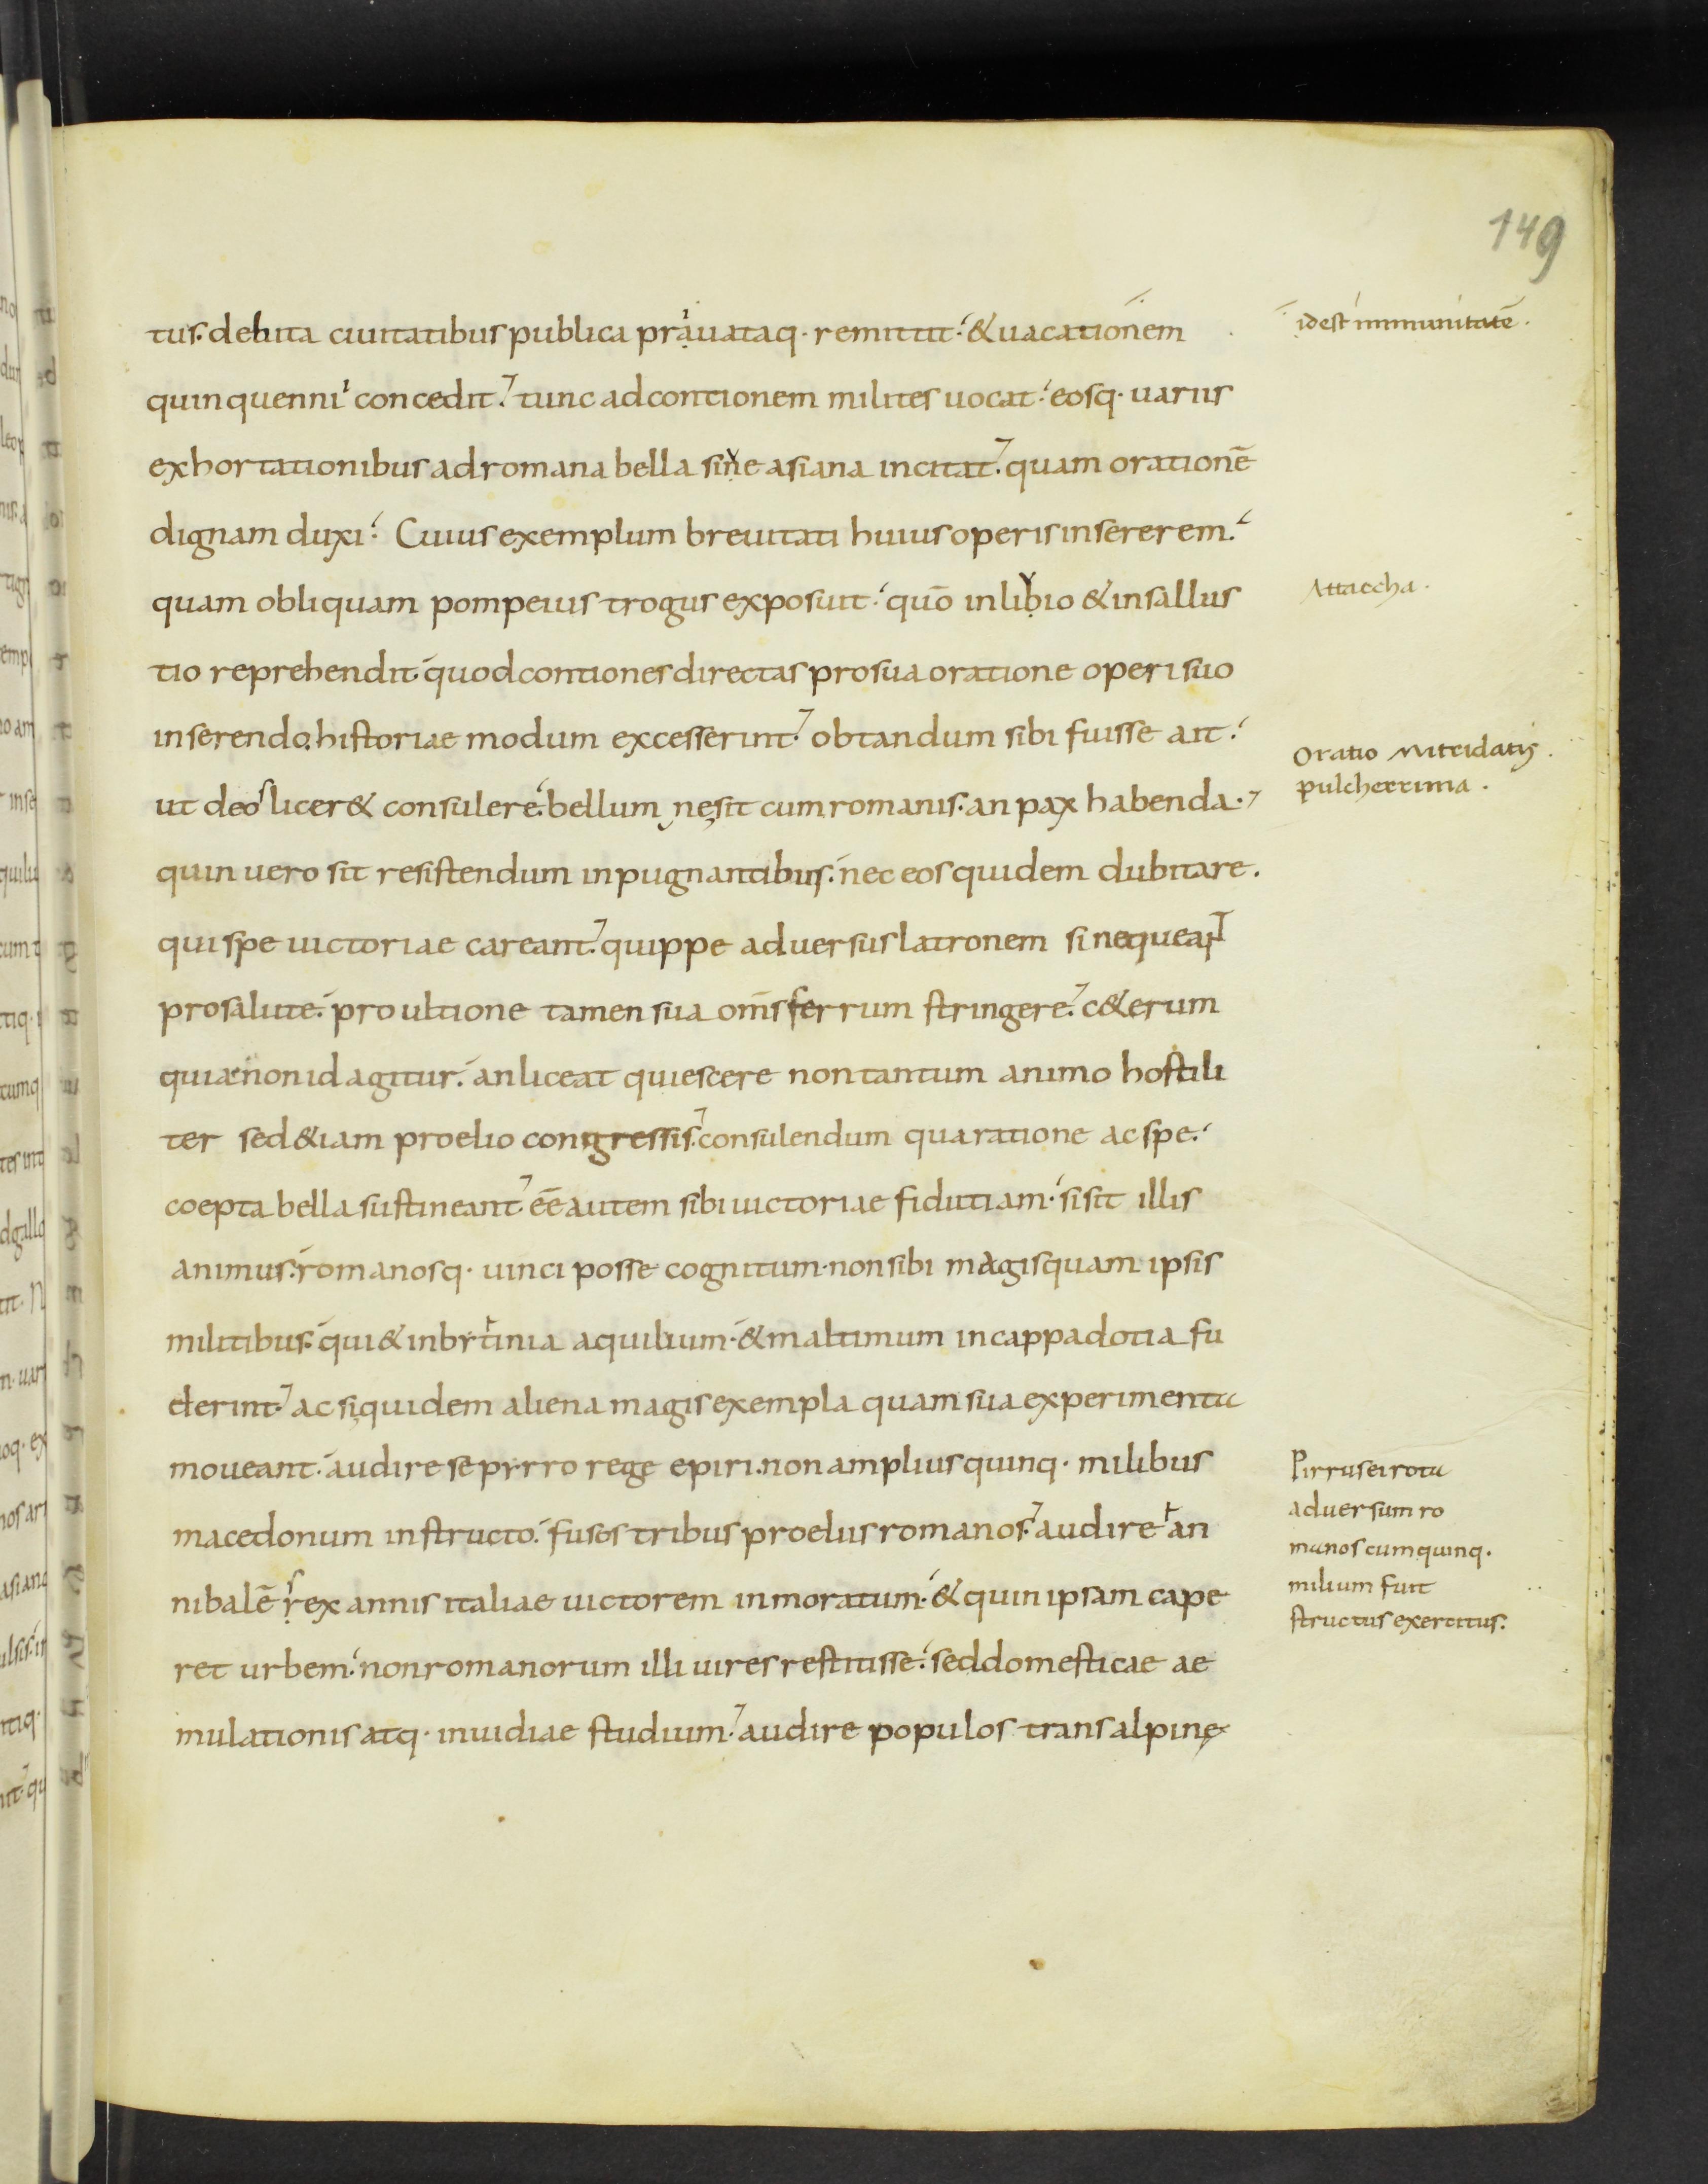 149
tus. debita ciuitatibus publica priuataq· remittit: & uacationem
idest immunitatē.
quinquennii concedit. tunc ad contionem milites uocat: eosq· uariis
exhortationibus ad romana bella siue asiana incitat. quam orationē
dignam duxi: Cuius exemplum breuitati huius operis insererem.
quam obliquam pompeius trogus exposuit. quō in libio & in sallus
Attaecha.
tio reprehendit. quod contiones directas pro sua oratione operi suo
inserendo historiae modum excesserint. obtandum sibi fuisse ait.
Oratio Mitridatis
ut deos licer& consulere. bellum ne sit cum romanis. an pax habenda.
pulcherrima.
quin uero sit resistendum inpugnantibus. nec eos quidem dubitare.
qui spe uictoriae careant. quippe aduersus latronem si nequeant
pro salute. pro ultione tamen sua om̄s ferrum stringere. c&erum
quia non id agitur. an liceat quiescere non tantum animo hostili
ter sed &iam proelio congressis. consulendum qua ratione ac spe.
coepta bella sustineant. eē autem sibi uictoriae fidutiam. si sit illis
animus. romanosq· uinci posse cognitum. non sibi magis quam ipsis
militibus. qui & in bytinia aquilium. & maltimum in cappadotia fu
derint. ac si quidem aliena magis exempla quam sua experimenta
moueant. audire se pyrro rege epiri. non amplius quinq· milibus
Pirrus eirota
macedonum instructo. fusos tribus proeliis romanos. audire an
aduersum ro
manos cum quinq·
nibalē sex annis italiae uictorem inmoratum. & quin ipsam cape
milium fuit
structus exercitus.
ret urbem. non romanorum illi uires restitisse. sed domesticae ae
mulationis atq· inuidiae studium. audire populos transalpinę